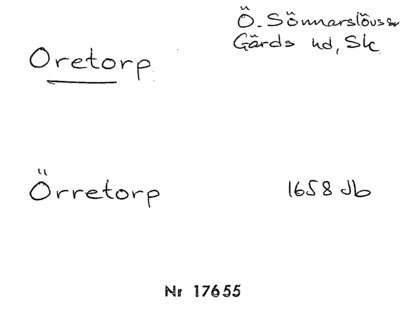 Oretorp
Ö. Sönnarslövs sn
Gärds hd, Sk
Örretorp
1658 Jb
Nr 17655